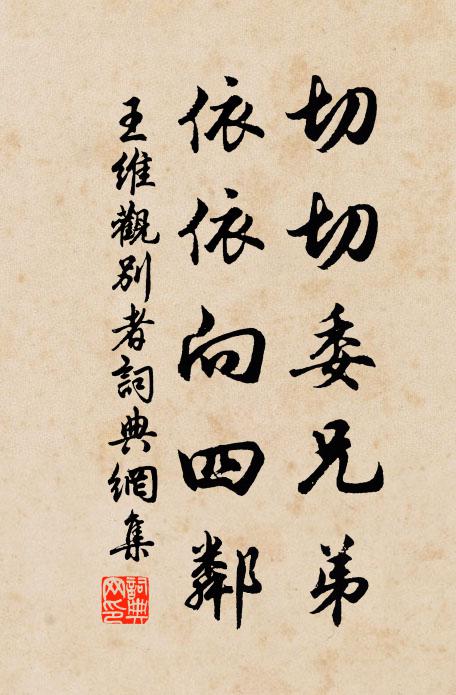 切切委兄弟
依依向四鄰
王維觀別者詞典網集
詞典網印